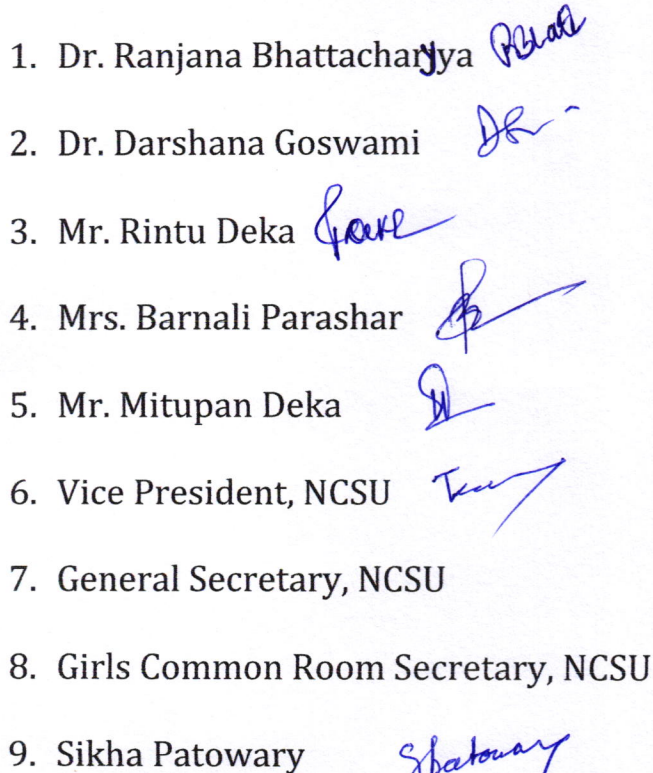 1. Dr. Ranjana Bhattacharyya
2. Dr. Darshana Goswami
3. Mr. Rintu Deka
4. Mrs. Barnali Parashar
5. Mr. Mitupan Deka
6. Vice President, NCSU
7. General Secretary, NCSU
8. Girls Common Room Secretary, NCSU
9. Sikha Patowary SPatowary